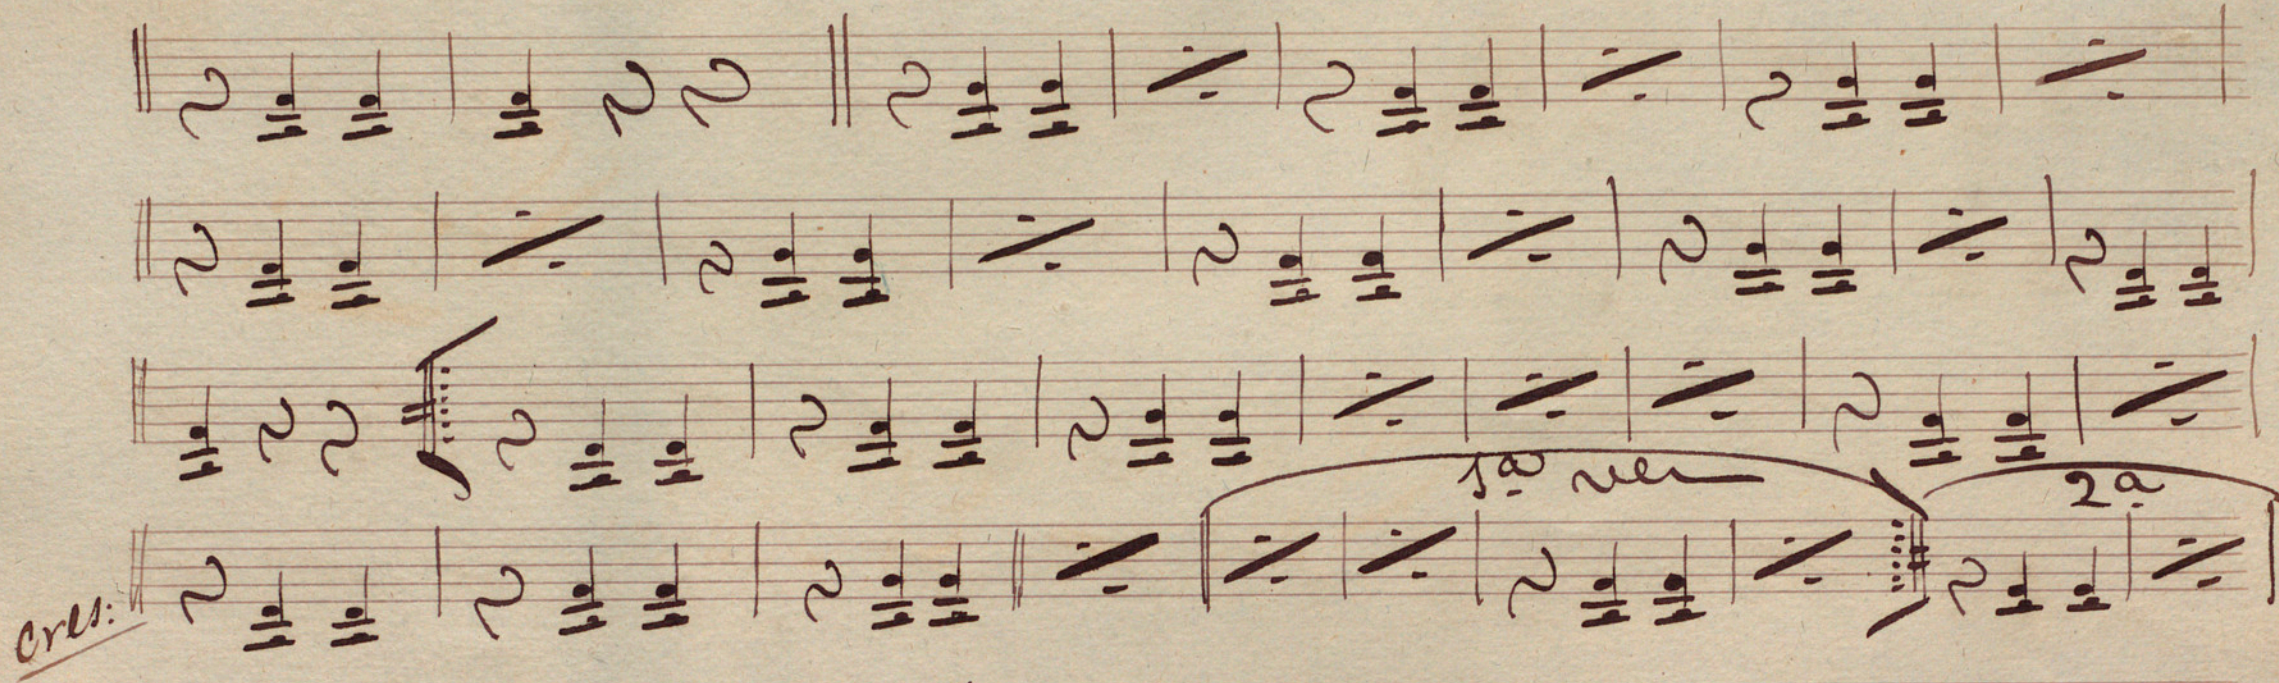 1ª vez
2ª
Cres: